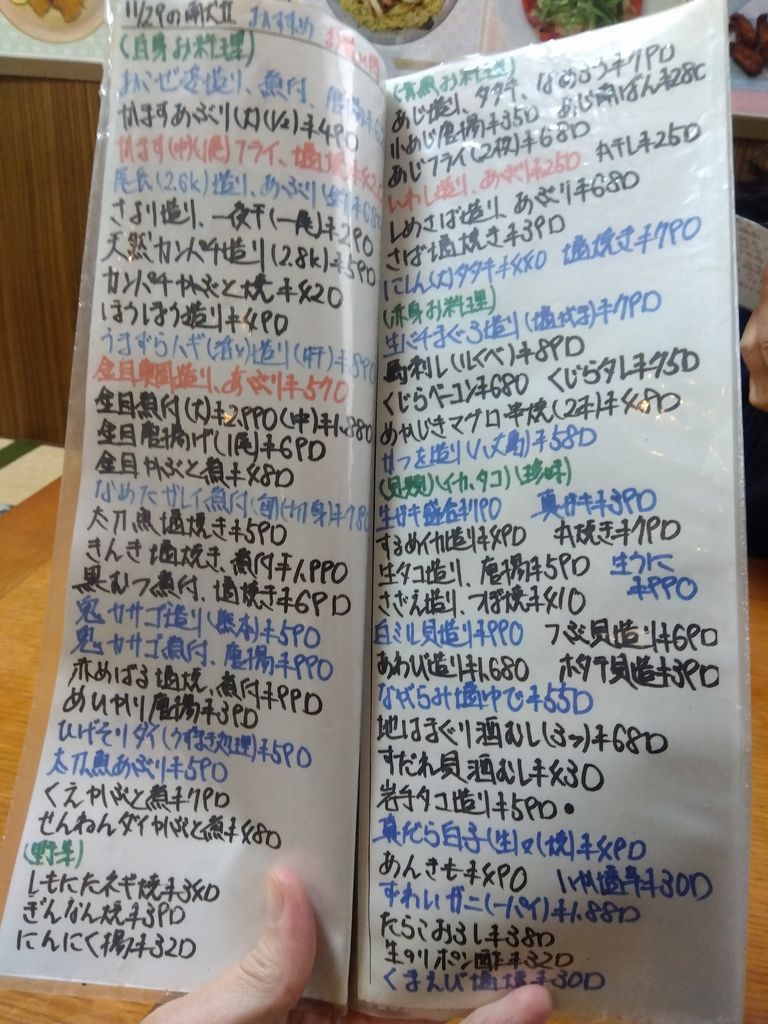 11/29の おすすめ
(白身お料理)
おこぜ姿造り、煮付、唐揚
かますあぶり(大)(1/2)¥490
かます(中)(1尾)フライ、塩焼
尾長(2.6k)造り、あぶり
さより造り、一夜干(一尾)¥290
天然カンパチ造り(2.8k)¥590
カンパチかぶと焼¥420
ほうぼう造り¥490
うまずらハギ 造り(肝)¥890
金目鯛造り、あぶり¥570
金目煮付(大)¥2,990(中)¥1,880
金目唐揚げ(1尾)¥690
金目かぶと煮¥480
なめたガレイ煮付 (切身)¥780
太刀魚塩焼き¥590
きんき塩焼き、煮付¥1,990
黒むつ煮付、塩焼き¥690
鬼カサゴ造り(熊本)¥590
鬼カサゴ煮付、唐揚¥990
赤めばる塩焼、煮付¥990
めひかり唐揚¥390
ひげそりダイ(うずまき処理)¥590
太刀魚あぶり¥590
くえかぶと煮¥790
せんねんダイかぶと煮¥480
(野菜)
しもにたネギ焼¥340
ぎんなん焼¥390
にんにく揚¥320
(青魚お料理)
あじ造り、タタキ、なめろう¥790
小あじ唐揚¥350 あじ南ばん¥280
あじフライ(2枚)¥680
いわし造り、あぶり¥250 丸干し¥250
しめさば造り、あぶり¥680
さば塩焼き¥390
にしん(大)タタキ¥440 塩焼き¥790
(赤身お料理)
生バチまぐろ造り(塩釜)¥790
馬刺し ¥890
くじらベーコン¥680 くじらタレ¥750
めかじきマグロ串焼(2本)¥480
かつを造り(八丈島)¥580
(貝類)(イカ、タコ)(珍味)
生ガキ盛合¥190 真ガキ¥390
するめイカ造り¥490 丸焼き¥790
生タコ造り、唐揚¥590 生うに¥990
さざえ造り、つぼ焼¥410
白ミル貝造り¥990 つぶ貝造り¥690
あわび造り¥1,680 ホタテ貝造¥390
ながらみ塩ゆで¥550
地はまぐり酒むし(3ヶ)¥680
すだれ貝酒むし¥430
岩手タコ造り¥590
真だら白子(生)or(焼)¥490
あんきも¥490 いか塩辛¥300
ずわいガニ(一パイ)¥1,880
たらこおろし¥380
生のりポン酢¥320
くまえび塩焼¥300